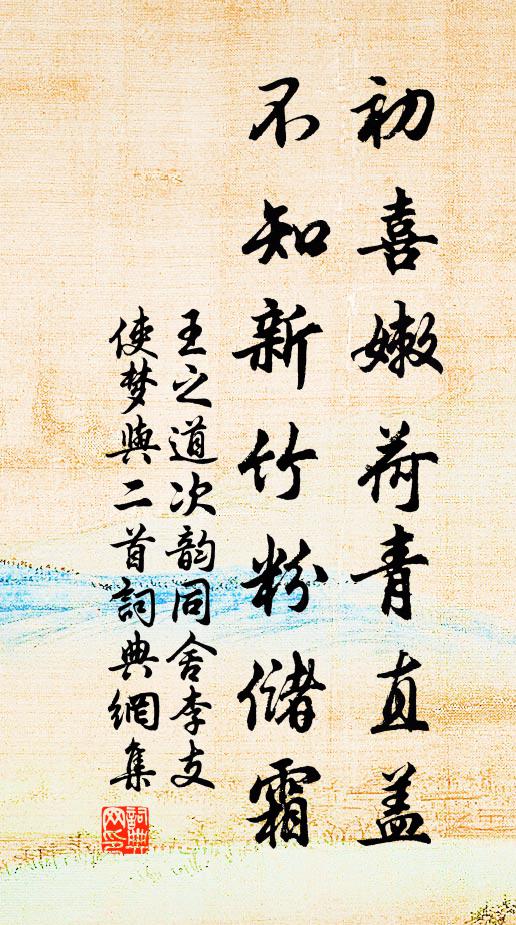 初喜嫩荷青直盖
不知新竹粉储霜
王之道次韵同舍李支
使梦與二首詞典網集
詞典網印